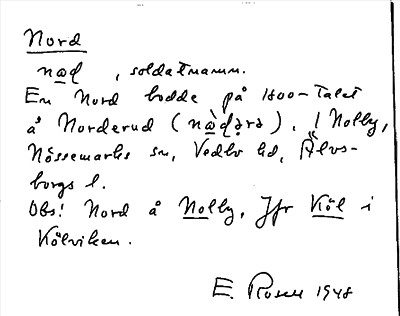 Nord
nɷd, soldatnamn.
En Nord bodde på 1800-talet
å Norderud (nɷ̀dərə), i Nolby,
Nössemarks sn, Vedbo hd, Älvs-
borgs l.
Obs! Nord å Nolby, Jfr Köl i
Kölviken.
E. Rosen 1948